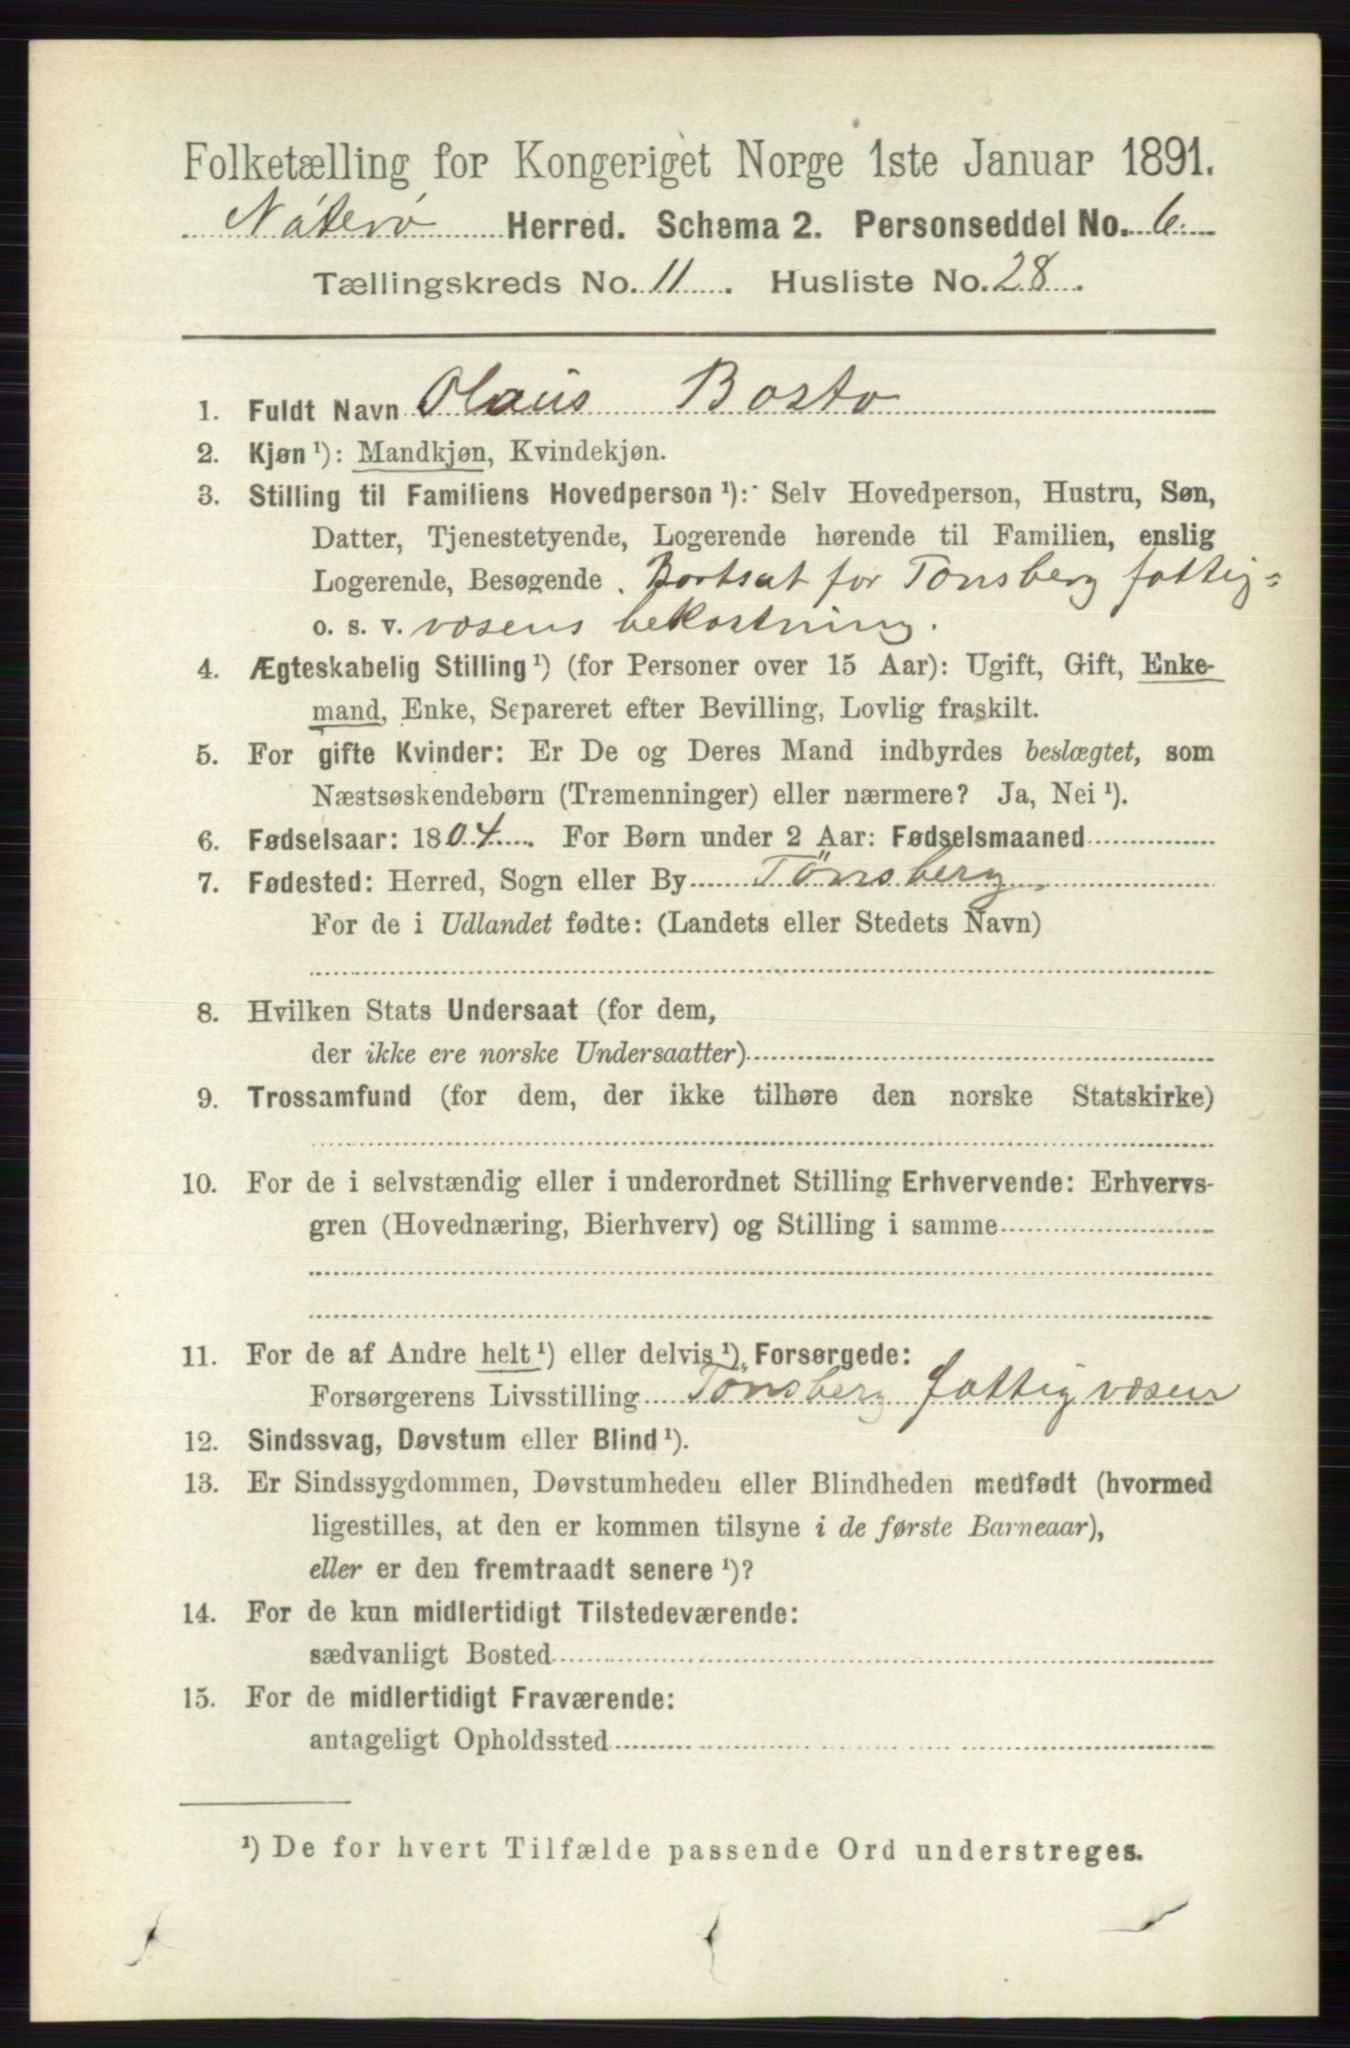 Folketælling for Kongeriget Norge 1ste Januar 1891.
Nøterø Herred. Schema 2. Personseddel No. 6
Tællingskreds No. 11. Husliste No. 28.
1. Fuldt Navn Olaus Bosto
2. Kjøn ¹): Mandkjøn, Kvindekjøn.
3. Stilling til Familiens Hovedperson ¹): Selv Hovedperson, Hustru, Søn,
Datter, Tjenestetyende, Logerende hørende til Familien, enslig
Logerende, Besøgende . Bortsat for Tønsberg fattig=
o. s. v. væsens bekostning.
4. Ægteskabelig Stilling ¹) (for Personer over 15 Aar): Ugift, Gift, Enke-
mand, Enke, Separeret efter Bevilling, Lovlig fraskilt.
5. For gifte Kvinder: Er De og Deres Mand indbyrdes beslægtet, som
Næstsøskendebørn (Tremenninger) eller nærmere? Ja, Nei ¹).
6. Fødselsaar: 1804. For Børn under 2 Aar: Fødselsmaaned
7. Fødested: Herred, Sogn eller By Tönsberg
For de i Udlandet fødte: (Landets eller Stedets Navn)
8. Hvilken Stats Undersaat (for dem,
der ikke ere norske Undersaatter)
9. Trossamfund (for dem, der ikke tilhøre den norske Statskirke)
10. For de i selvstændig eller i underordnet Stilling Erhvervende: Erhvervs-
gren (Hovednæring, Bierhverv) og Stilling i samme
11. For de af Andre helt ¹) eller delvis ¹) Forsørgede:
Forsørgerens Livsstilling Tönsberg fattigvæsen
12. Sindssvag, Døvstum eller Blind ¹).
13. Er Sindssygdommen, Døvstumheden eller Blindheden medfødt (hvormed
ligestilles, at den er kommen tilsyne i de første Barneaar),
eller er den fremtraadt senere ¹)?
14. For de kun midlertidigt Tilstedeværende:
sædvanligt Bosted
15. For de midlertidigt Fraværende:
antageligt Opholdssted
¹) De for hvert Tilfælde passende Ord understreges.